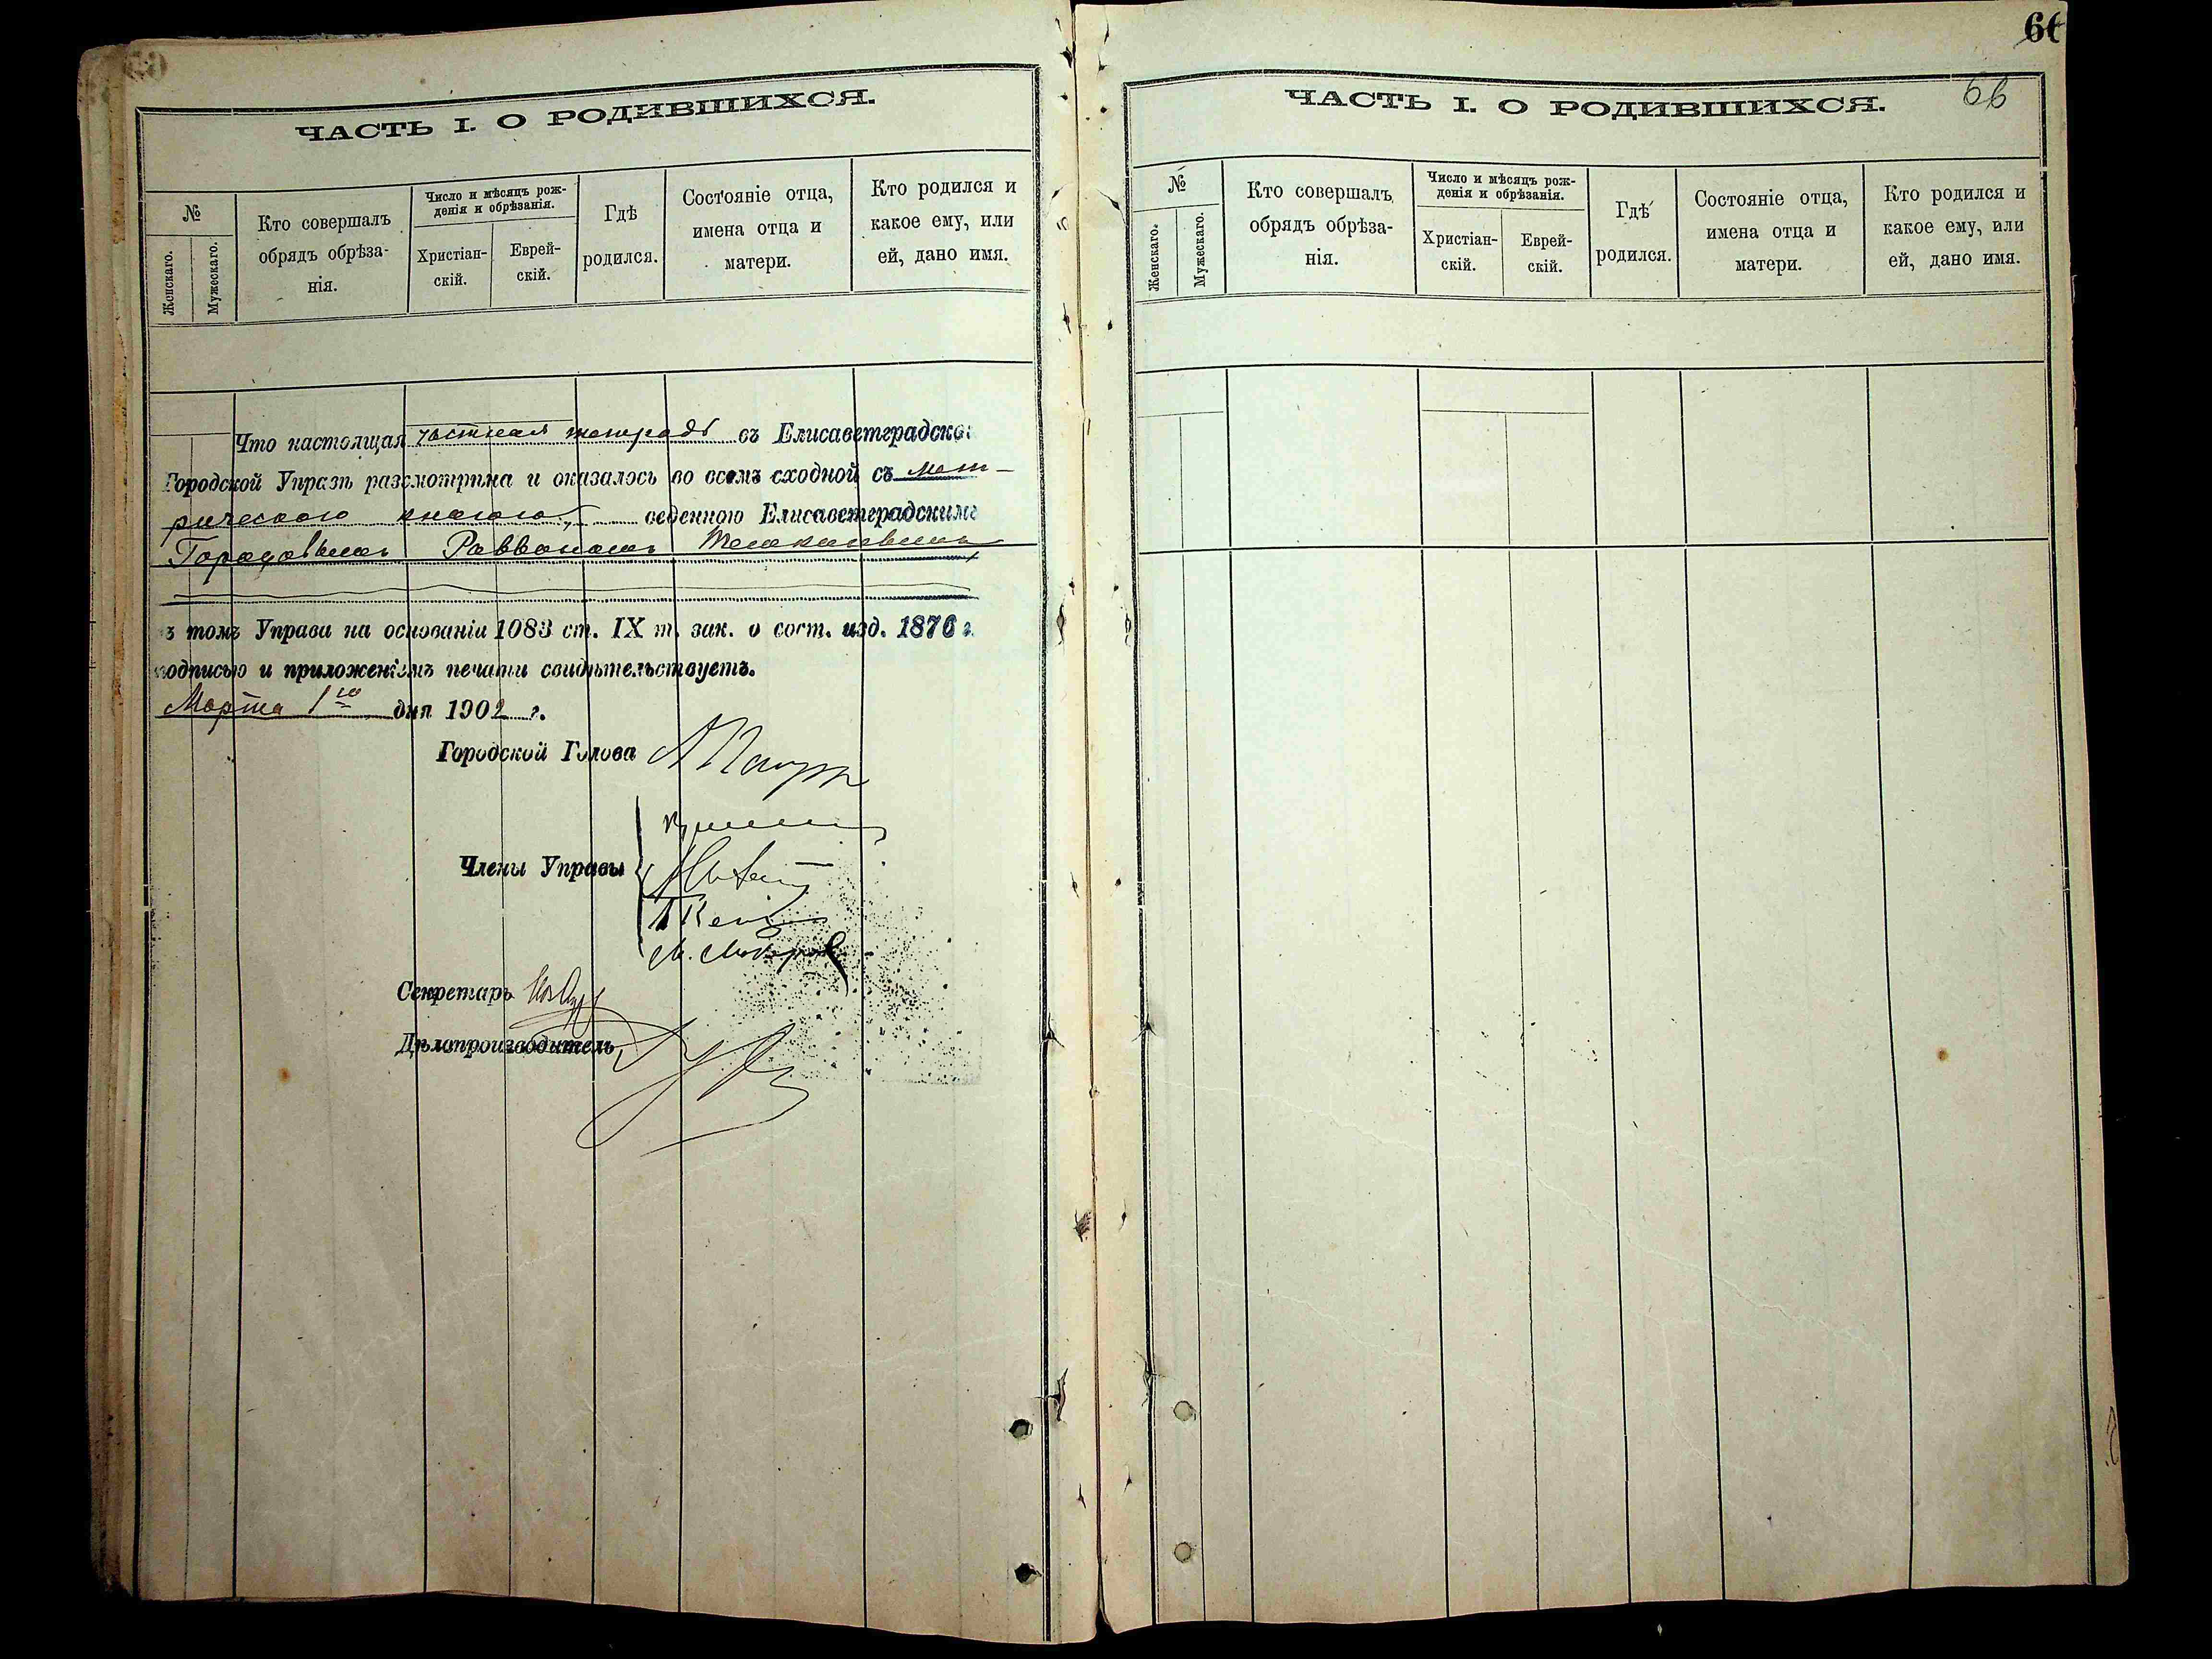 ЧАСТЬ I. О РОДИВШИХСЯ.
№
Женскаго.
Мужескаго.
Кто совершалъ
обрядъ обрѣза-
нія.
Число и мѣсяцъ рож-
денія и обрѣзанія.
Христіан-
скій.
Еврей-
скій.
Гдѣ
родился.
Состояніе отца,
имена отца и
матери.
Кто родился и
какое ему, или
ей, дано имя.
Что настоящая частная тетрадь съ Елисаветградско
Городской Управѣ разсмотрѣна и оказалось во всемъ сходной съ мет-
рическою книгою, веденною Елисаветградскимъ
Городовымъ Раввиномъ
ъ томъ Управа на основаніи 1083 ст. IX т. зак. о сост. изд. 1876 г.
подписью и приложеніемъ печати свидѣтельствуетъ.
Марта 1го дня 1902 г.
Городской Голова
Члены Управы
М. Макаров
Секретарь
Дѣлопроизводитель
66
66
ЧАСТЬ I. О РОДИВШИХСЯ.
№
Женскаго.
Мужескаго.
Кто совершалъ
обрядъ обрѣза-
нія.
Число и мѣсяцъ рож-
денія и обрѣзанія.
Христіан-
скій.
Еврей-
скій.
Гдѣ
родился.
Состояніе отца,
имена отца и
матери.
Кто родился и
какое ему, или
ей, дано имя.